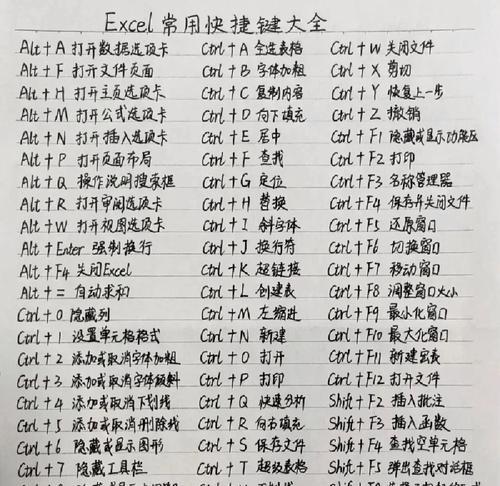 Excel 常用快捷键大全
Alt + A 打开数据选项卡 Ctrl + A 全选表格 Ctrl + W 关闭文件
Alt + F 打开文件页面 Ctrl + B 字体加粗 Ctrl + X 剪切
Alt + H 打开主页选项卡 Ctrl + C 复制内容 Ctrl + Y 恢复上一步
Alt + M 打开公式选项卡 Ctrl + D 向下填充 Ctrl + Z 撤销
Alt + N 打开插入选项卡 Ctrl + E 居中 Ctrl + F1 隐藏或显示功能区
Alt + P 打开页面布局 Ctrl + F 查找 Ctrl + F2 打印
Alt + Q 操作说明搜索框 Ctrl + G 定位 Ctrl + F3 名称管理器
Alt + R 打开审阅选项卡 Ctrl + H 替换 Ctrl + F4 保存并关闭文件
Alt + W 打开视图选项卡 Ctrl + I 斜字体 Ctrl + F5 还原窗口
Alt + Enter 强制换行 Ctrl + J 换行符 Ctrl + F6 切换窗口
Alt + F4 关闭Excel Ctrl + K 超链接 Ctrl + F7 移动窗口
Alt + = 自动求和 Ctrl + L 创建表 Ctrl + F8 调整窗口大小
Ctrl + 0 隐藏列 Ctrl + M 左缩进 Ctrl + F9 最小化窗口
Ctrl + 1 设置单元格格式 Ctrl + N 新建 Ctrl + F10 最大化窗口
Ctrl + 2 添加或取消字体加粗 Ctrl + O 打开 Ctrl + F11 新建宏表
Ctrl + 3 添加或取消字体倾斜 Ctrl + P 打印 Ctrl + F12 打开文件
Ctrl + 4 添加或取消下划线 Ctrl + Q 快速分析 Shift + F2 插入批注
Ctrl + 5 添加或取消删除线 Ctrl + R 向右填充 Shift + F3 插入函数
Ctrl + 6 隐藏或显示图形 Ctrl + S 保存文件 Shift + F4 查找空单元格
Ctrl + 7 隐藏工具栏 Ctrl + T 超级表格 Shift + F5 弹出查找对话框